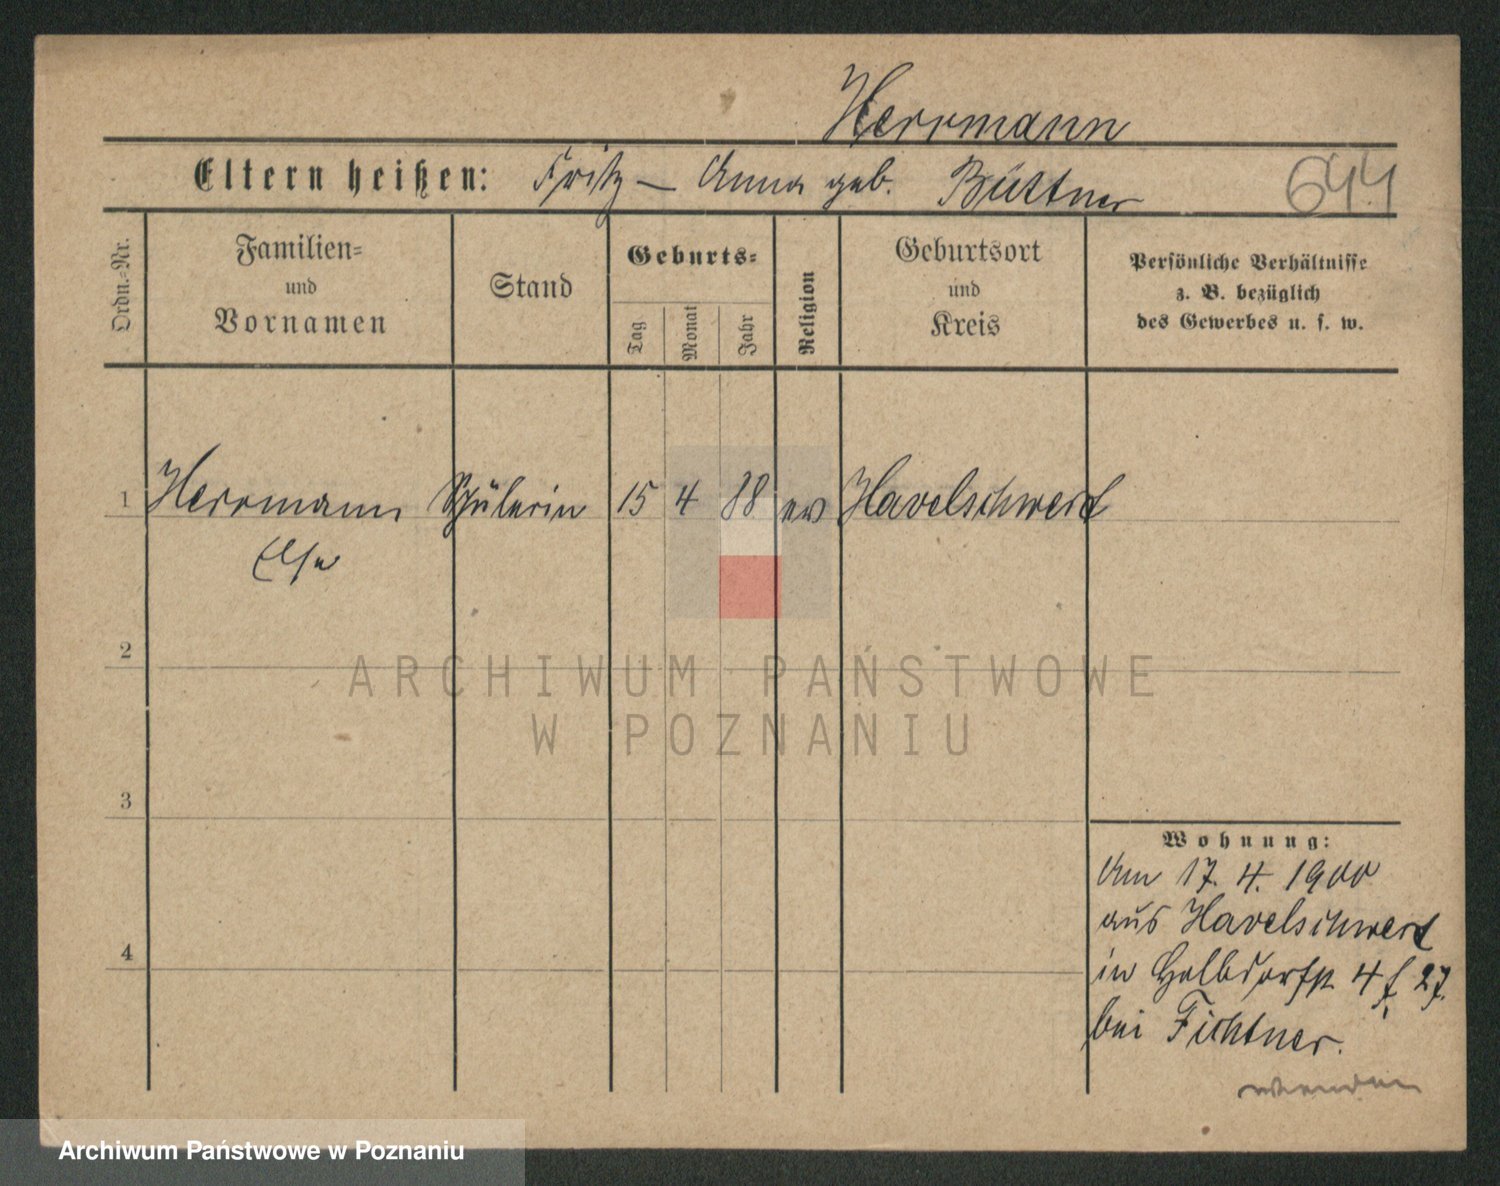 Herrmann
Eltern heißen: Fritz – Anna geb. Büttner
644
Ordn.=Nr.
Familien=
und
Vornamen
Stand
Geburts=
Tag
Monat
Jahr
Religion
Geburtsort
und
Kreis
Persönliche Verhältnisse
z. B. bezüglich
des Gewerbes u. s. w.
1 Herrmann Schülerin 15 4 88 ev Havelschwerd
Else
2
ARCHIWUM PAŃSTWOWE
W POZNANIU
3
Wohnung:
Am 17. 4. 1900
aus Havelschwerd
in Halbdorfstr 4 f 27.
4
bei Fichtner.
wenden
Archiwum Państwowe w Poznaniu